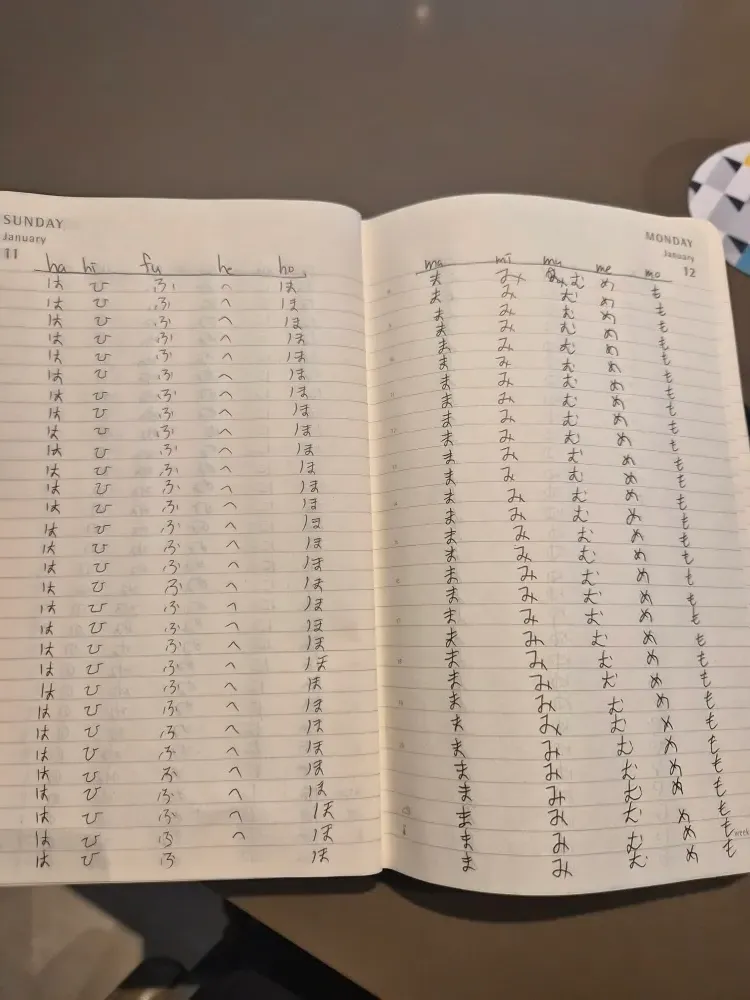 SUNDAY
January
11
ha hi fu he ho
は ひ ふ へ ほ
は ひ ふ へ ほ
は ひ ふ へ ほ
は ひ ふ へ ほ
は ひ ふ へ ほ
は ひ ふ へ ほ
は ひ ふ へ ほ
は ひ ふ へ ほ
は ひ ふ へ ほ
は ひ ふ へ ほ
は ひ ふ へ ほ
は ひ ふ へ ほ
は ひ ふ へ ほ
は ひ ふ へ ほ
は ひ ふ へ ほ
は ひ ふ へ ほ
は ひ ふ へ ほ
は ひ ふ へ ほ
は ひ ふ へ ほ
は ひ ふ へ ほ
は ひ ふ へ ほ
は ひ ふ へ ほ
は ひ ふ へ ほ
は ひ ふ へ ほ
は ひ ふ へ ほ
は ひ ふ へ ほ
は ひ ふ へ ほ
は ひ ふ へ ほ
は ひ ふ へ ほ
は ひ ふ ほ
MONDAY
January
12
ma mi mu me mo
ま み む め も
ま み む め も
ま み む め も
ま み む め も
ま み む め も
ま み む め も
ま み む め も
ま み む め も
ま み む め も
ま み む め も
ま み む め も
ま み む め も
ま み む め も
ま み む め も
ま み む め も
ま み む め も
ま み む め も
ま み む め も
ま み む め も
ま み む め も
ま み む め も
ま み む め も
ま み む め も
ま み む め も
ま み む め も
ま み む め も
ま み む め も
ま み む め も
ま み む め も
ま み む め も